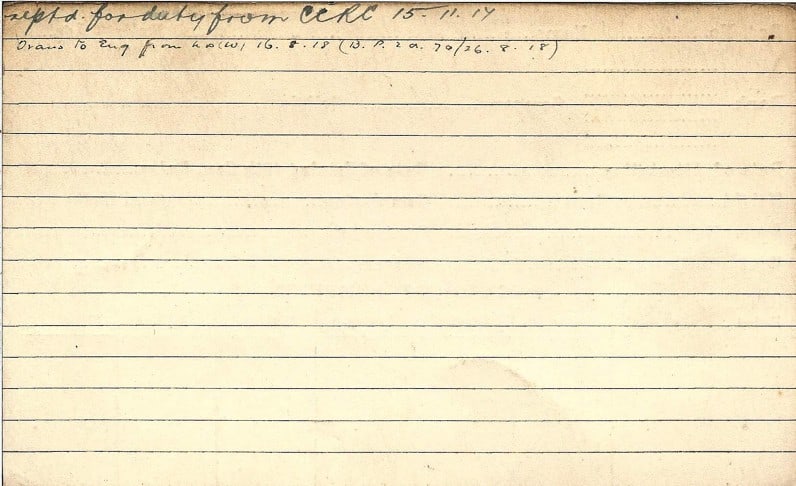 reptd. for duty from CCRC 15.11.17
Trans to Eng from (W) 16.8.18 (D.P.2a.70/26.8.18)